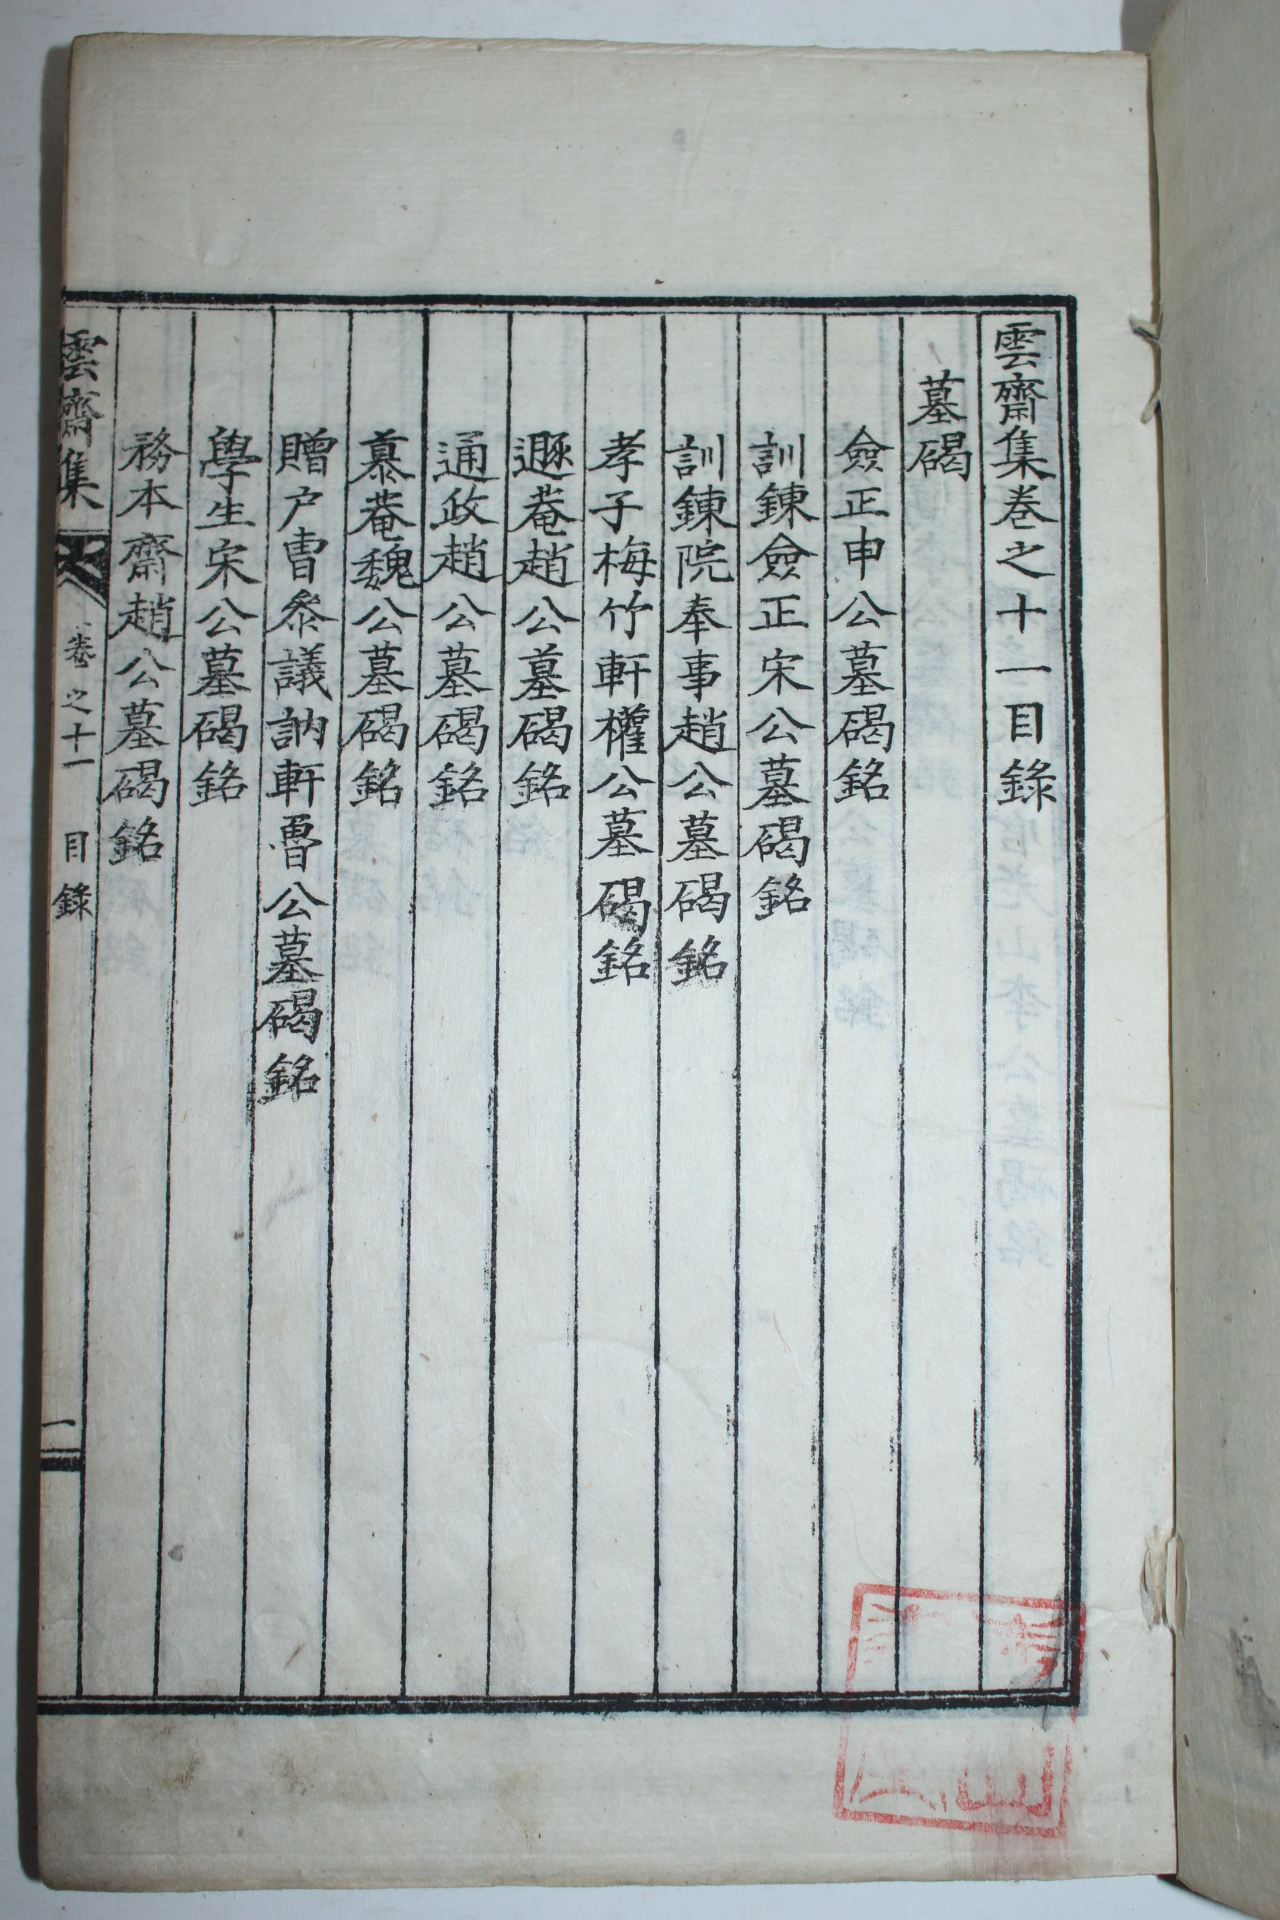 雲齋集卷之十一目錄
墓碣
僉正申公墓碣銘
訓鍊僉正宋公墓碣銘
訓鍊院奉事趙公墓碣銘
孝子梅竹軒權公墓碣銘
遯菴趙公墓碣銘
通政趙公墓碣銘
慕菴魏公墓碣銘
贈户曺叅議訥軒曺公墓碣銘
學生宋公墓碣銘
務本齋趙公墓碣銘
雲齋集
卷之十一
目錄
一